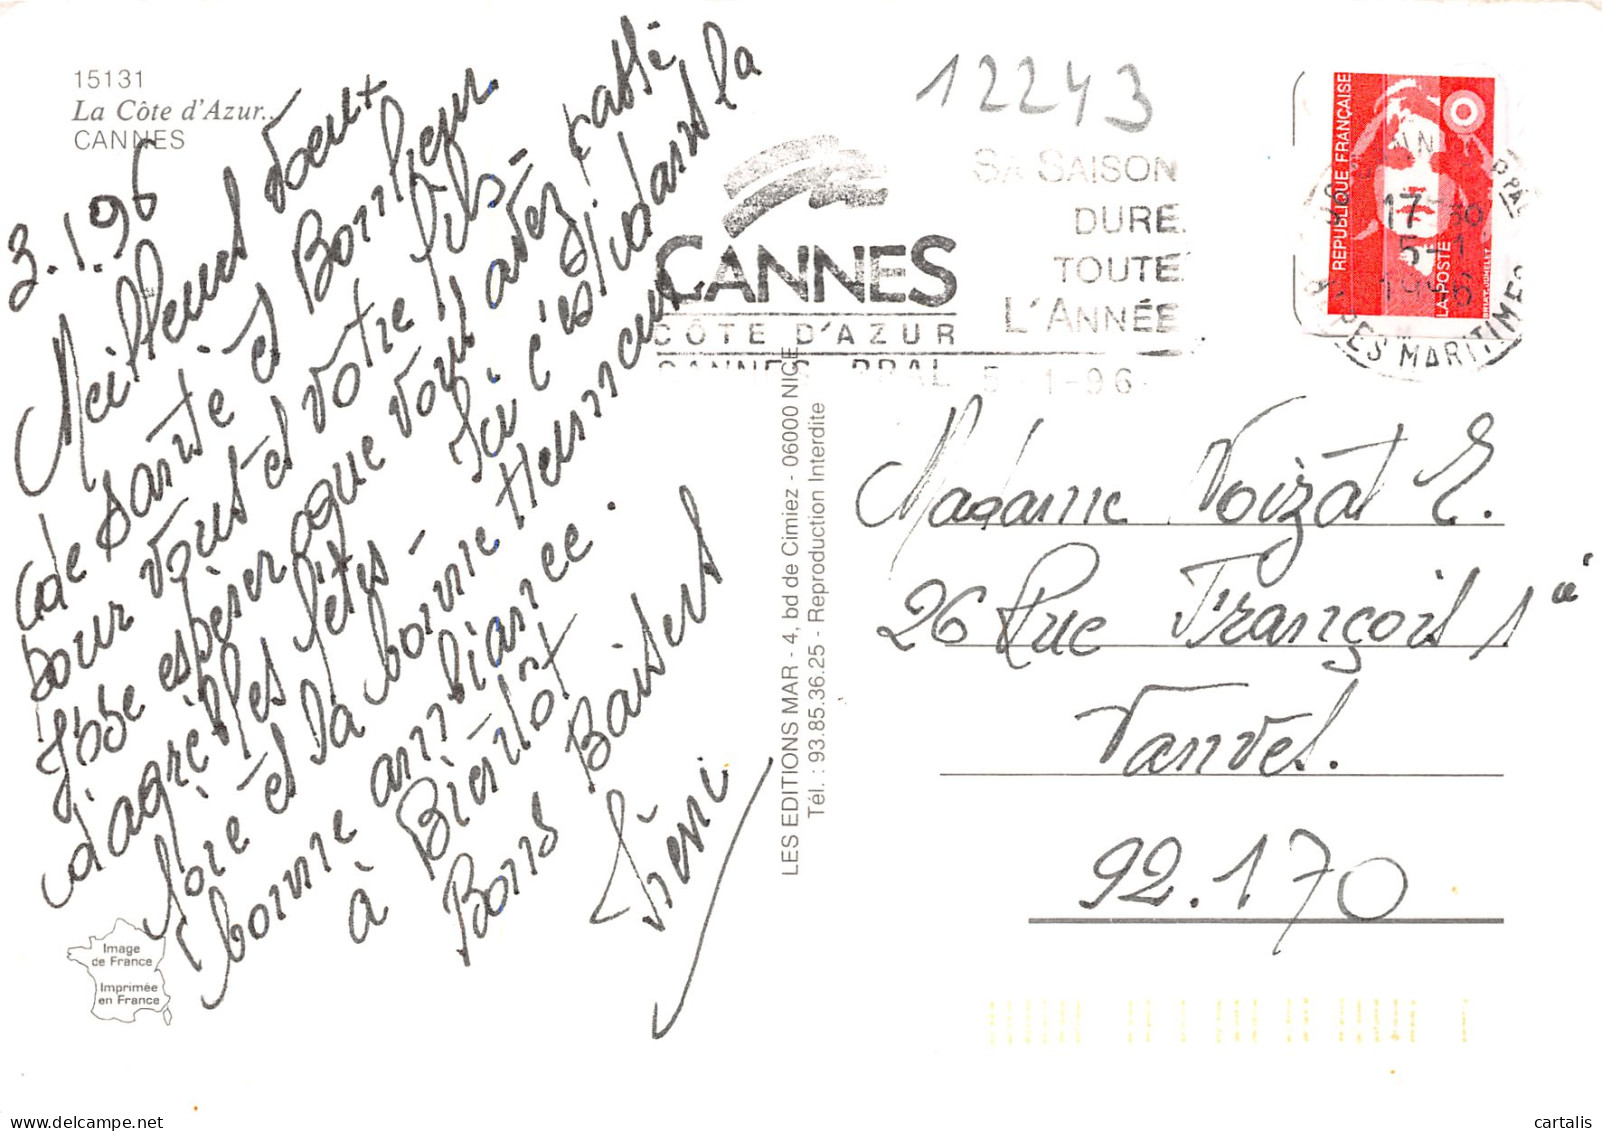 15131
La Côte d'Azur...
CANNES
3.1.96
Meilleurs Voeux
de Santé et Bonheur
pour vous et votre fils -
J'ose espérer que vous avez passé
d'agréables fêtes - Ici c'est dans la
Joie et la bonne Humeur
bonne ambiance.
à Bientôt
Bons Baisers
Iréni
Image
de France
Imprimée
en France
LES EDITIONS MAR - 4, bd de Cimiez - 06000 NICE
Tél. : 93.85.36.25 - Reproduction Interdite
12243
CANNES
CÔTE D'AZUR
SA SAISON
DURE
TOUTE
L'ANNÉE
CANNES PPAL 5 1-96
REPUBLIQUE FRANÇAISE
LA POSTE
BRIAT-JUMELET
17-30
5-1
1996
ALPES MARITIMES
Madame Voizat E.
26 Rue François 1er
Vanves.
92.170
cartalis